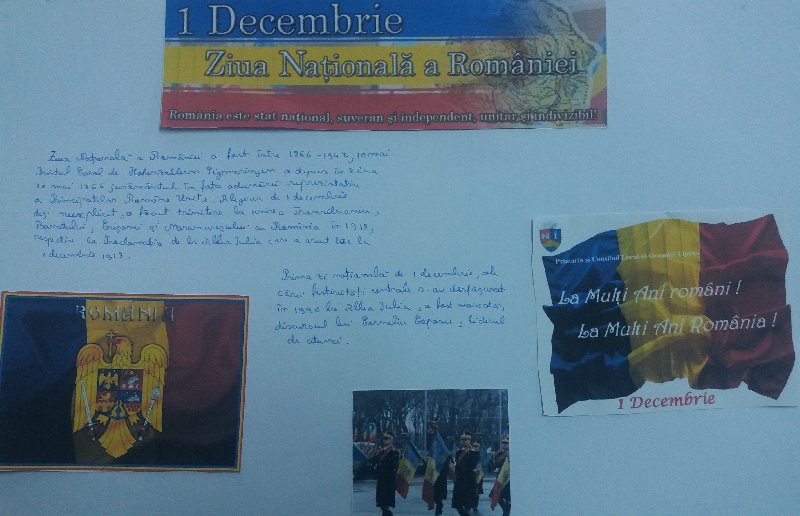 1 Decembrie
Ziua Națională a României
România este stat național, suveran și independent, unitar și indivizibil!
Ziua Națională a României a fost între 1866-1947, 10 mai
Carol de Hohenzollern Sigmaringen a depus în ziua
10 mai 1866 jurământul în fața adunării reprezentative
a Principatelor Române Unite. Alegerea de 1 decembrie
deși neexplicit, a făcut trimitere la unirea Transilvaniei,
Banatului, Crișanei și Maramureșului cu România în 1918,
respectiv la Proclamația de la Alba Iulia care a avut loc la
1 decembrie 1918.
Prima zi națională de 1 decembrie, ale
cărei festivități centrale s-au desfășurat
în 1990 la Alba Iulia, a fost marcată,
discursul lui Corneliu Coposu, liderul
de atunci.
ROMÂNIA
Primaria și Consiliul Local al Orasului
La Mulți Ani români !
La Mulți Ani România !
1 Decembrie